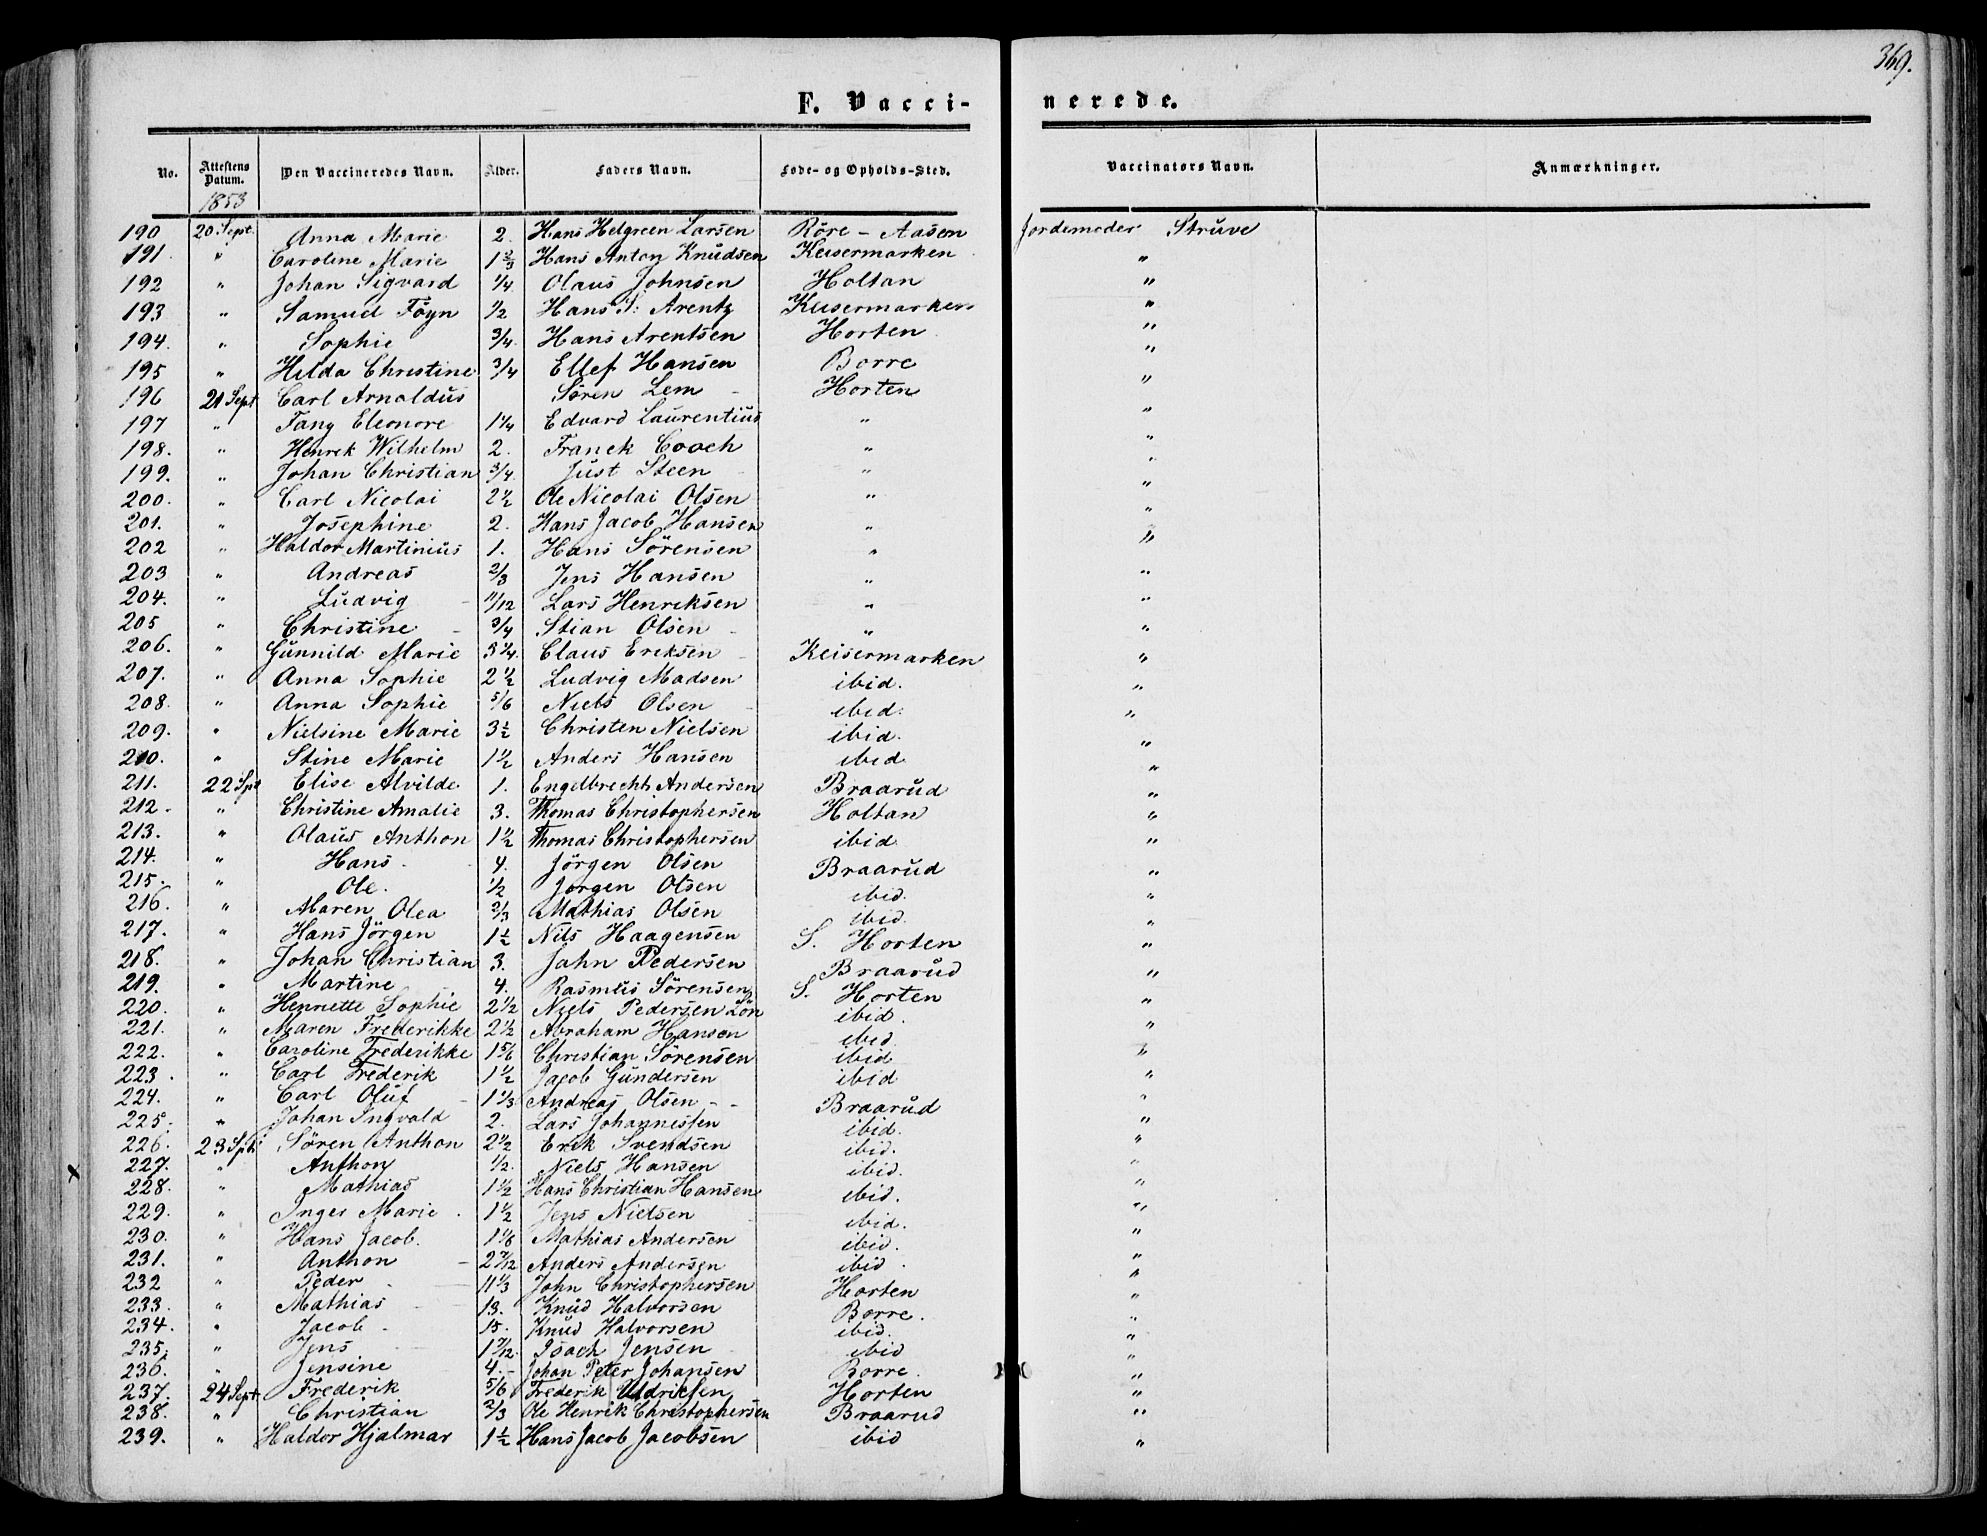 369.
F. Vaccinerede.
No. Attestens Datum. Den Vaccineredes Navn. Alder. Faders Navn. Føde- og Opholds-Sted. Vaccinators Navn. Anmærkninger.
1853
190 20 Sept. Anna Marie 2. Hans Helgreen Larsen Röre - Aasen Jordemoder Struve
191. " Caroline Marie 1 2/3 Hans Anton Knudsen Keisermarken "
192 " Johan Sigvard 1/4. Olaus Johnsen Holtan "
193 " Samuel Föyn 1/2 Hans S. Arentz Keisermarken "
194. " Sophie 3/4. Hans Arentsen Horten. "
195 " Hilda Christine 3/4 Ellef Hansen Borre "
196 21 Sept Carl Arnoldus Sören Lem - Horten "
197 " Fany Eleonore 1 1/4 Edvard Laurentius " "
198. " Henrik Wilhelm 2. Franck Cooch " "
199. " Johan Christian 3/4. Just Steen " "
200. " Carl Nicolai 2 1/2 Ole Nicolai Olsen " "
201. " Josephine 2. Hans Jacob Hansen " "
202 " Haldor Martinius 1. Hans Sörensen " "
203 " Andreas 2/3 Jens Hansen " "
204. " Ludvig 11/12 Lars Henriksen " "
205 " Christine 3/4 Stian Olsen " "
206. " Gunnild Marie 3 1/4. Claus Eriksen Keisermarken "
207. " Anna Sophie 2 1/2 Ludvig Madsen ibid. "
208. " Anna Sophie 5/6 Niels Olsen ibid. "
209. " Nielsine Marie 3 1/2 Christen Nielsen ibid. "
210. " Stine Marie 1 1/2 Anders Hansen ibid "
211. 22 Spt Elise Alvilde 1. Engelbrecht Andersen Braarud "
212. " Christine Amalie 3. Thomas Christophersen Holtan "
213. " Olaus Anthon 1 1/2 Thomas Christophersen ibid "
214. " Hans 4. Jörgen Olsen Braarud "
215. " Ole. 1/2 Jörgen Olsen ibid. "
216. " Maren Olea 2/3 Mathias Olsen ibid. "
217. " Hans Jörgen 1 1/2 Nils Haagensen S. Horten "
218. " Johan Christian 3. John Pedersen Braarud "
219. " Martine 4. Rasmus Sörensen S. Horten "
220. " Henriette Sophie 2 1/2 Niels Pedersen Lön ibid. "
221. " Maren Frederikke 2 1/2 Abraham Hansen ibid. "
222. " Caroline Frederikke 1 5/6 Christian Sörensen ibid "
223. " Carl Frederik 1 1/2 Jacob Gundersen ibid "
224. " Carl Oluf 1 1/3 Andreas Olsen - - Braarud "
225. " Johan Ingvald 2. Lars Johannissen ibid. "
226. 23 Spt. Sören Anthon 2 1/2 Erik Svendsen ibid. "
227. " Anthon 1/2. Niels Hansen ibid. "
228. " Mathias 1 1/2 Hans Christian Hansen ibid. "
229. " Inger Marie. 1 1/2 Jens Nielsen ibid. "
230. " Hans Jacob. 1 1/6 Mathias Andersen ibid. "
231. " Anthon 2 7/12 Anders Andersen ibid. "
232 " Peder 11 1/3 John Christophersen Horten "
233. " Mathias 13. Knud Halvorsen Borre. "
234. " Jacob 15. Knud Halvorsen ibid. "
235. " Jens 1 7/12. Isach Jensen ibid "
236. " Jensine 4. - Johan Peter Johansen Borre. "
237. 24 Sept. Frederik 5/6 Frederik Uldriksen Horten "
238. " Christian 2/3 Ole Henrik Christophersen Braarud "
239. " Haldor Hjalmar 1 1/2 Hans Jacob Jacobsen ibid "